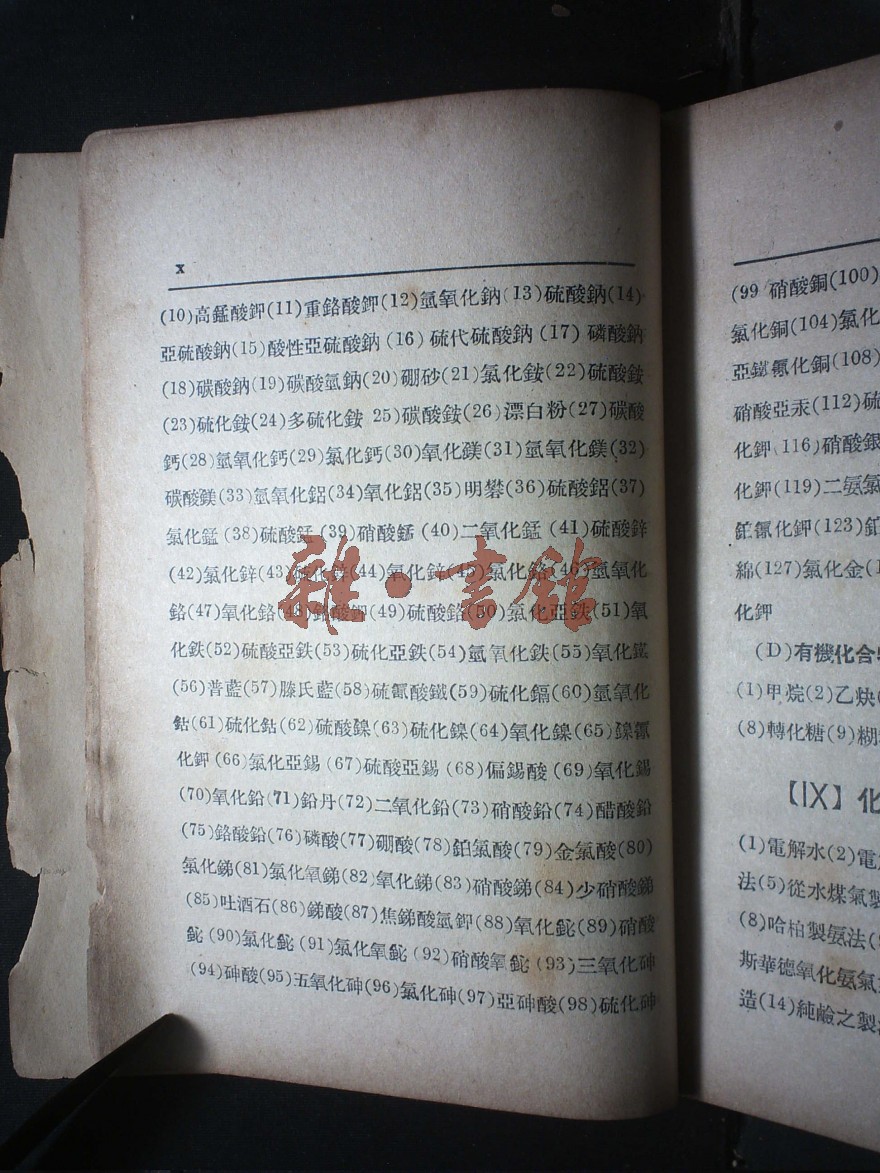 x
(10)高錳酸鉀(11)重鉻酸鉀(12)氫氧化鈉(13)硫酸鈉(14)
亞硫酸鈉(15)酸性亞硫酸鈉(16)硫代硫酸鈉(17)磷酸鈉
(18)碳酸鈉(19)碳酸氫鈉(20)硼砂(21)氯化銨(22)硫酸銨
(23)硫化銨(24)多硫化銨 25)碳酸銨(26)漂白粉(27)碳酸
鈣(28)氫氧化鈣(29)氯化鈣(30)氧化鎂(31)氫氧化鎂(32)
碳酸鎂(33)氫氧化鋁(34)氧化鋁(35)明礬(36)硫酸鋁(37)
氯化錳(38)硫酸錳(39)硝酸錳(40)二氧化錳(41)硫酸鋅
(42)氯化鋅(43)硫化鋅(44)氧化鋅(45)氯化鉻(46)氫氧化
鉻(47)氧化鉻(48)鉻酸鉀(49)硫酸鉻(50)氯化亞鉄(51)氧
化鉄(52)硫酸亞鉄(53)硫化亞鉄(54)氫氧化鉄(55)氧化鐵
(56)普藍(57)滕氏藍(58)硫氰酸鐵(59)硫化鎘(60)氫氧化
鈷(61)硫化鈷(62)硫酸鎳(63)硫化鎳(64)氧化鎳(65)鎳氰
化鉀(66)氯化亞錫(67)硫酸亞錫(68)偏錫酸(69)氧化錫
(70)氧化鉛(71)鉛丹(72)二氧化鉛(73)硝酸鉛(74)醋酸鉛
(75)鉻酸鉛(76)磷酸(77)硼酸(78)鉑氯酸(79)金氯酸(80)
氫化銻(81)氯化氧銻(82)氧化銻(83)硝酸銻(84)少硝酸銻
(85)吐酒石(86)銻酸(87)焦銻酸氫鉀(88)氧化鉍(89)硝酸
鉍(90)氯化鉍(91)氯化氧鉍(92)硝酸氧鉍(93)三氧化砷
(94)砷酸(95)五氧化砷(96)氯化砷(97)亞砷酸(98)硫化砷
雜·書館
(99 硝酸銅(100)
氯化銅(104)氯化
亞鐵氰化銅(108)
硝酸亞汞(112)硫
化鉀(116)硝酸銀
化鉀(119)二氨氯
鉑氰化鉀(123)鉑
綿(127)氯化金(1
化鉀
(D)有機化合
(1)甲烷(2)乙炔
(8)轉化糖(9)糊
【IX】化
(1)電解水(2)電
法(5)從水煤氣製
(8)哈柏製氨法(
斯華德氧化氨氣
造(14)純鹼之製